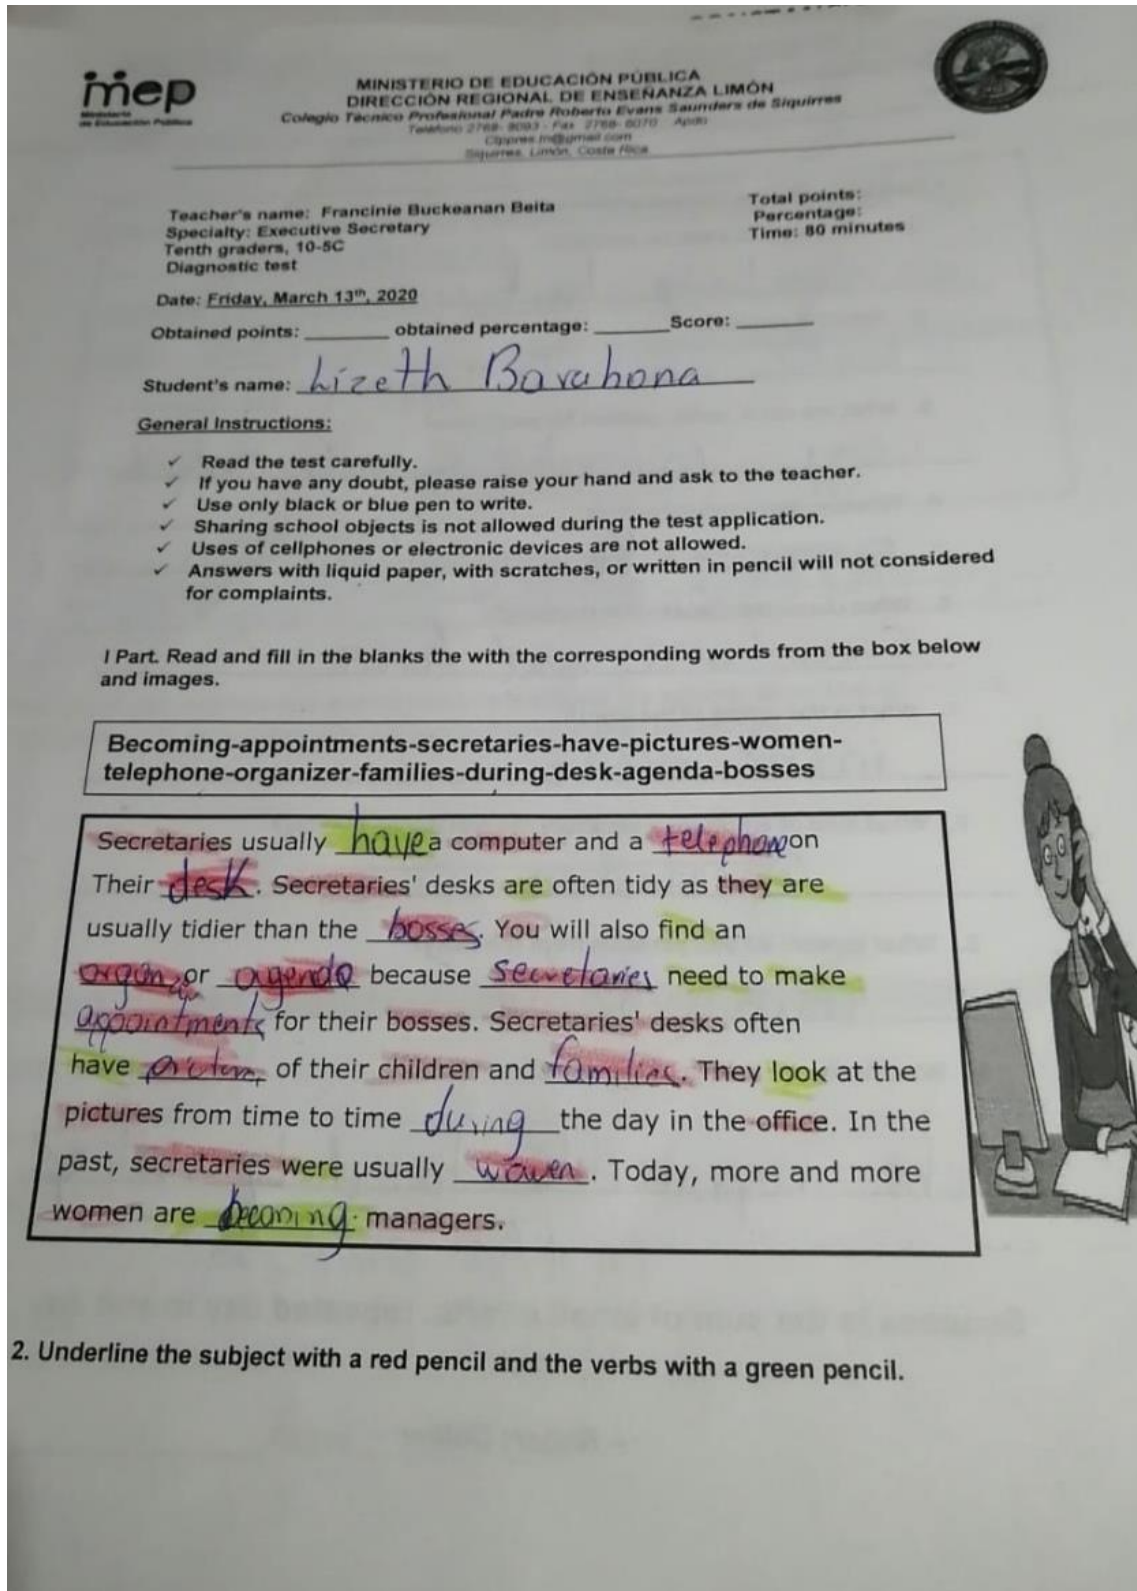 mep
Ministerio
de Educación Pública
MINISTERIO DE EDUCACIÓN PÚBLICA
DIRECCIÓN REGIONAL DE ENSEÑANZA LIMÓN
Colegio Técnico Profesional Padre Roberto Evans Saunders de Siquirres
Teléfono 2768- 8093 - Fax 2768- 6070 Apdo
Siquirres, Limón, Costa Rica
Teacher's name: Francinie Buckeanan Beita
Specialty: Executive Secretary
Tenth graders, 10-5C
Diagnostic test
Total points:
Percentage:
Time: 80 minutes
Date: Friday, March 13th, 2020
Obtained points: ________ obtained percentage: _______Score: ________
Student's name: Lizeth Barahona
General Instructions:
✓ Read the test carefully.
✓ If you have any doubt, please raise your hand and ask to the teacher.
✓ Use only black or blue pen to write.
✓ Sharing school objects is not allowed during the test application.
✓ Uses of cellphones or electronic devices are not allowed.
✓ Answers with liquid paper, with scratches, or written in pencil will not considered
for complaints.
I Part. Read and fill in the blanks the with the corresponding words from the box below
and images.
Becoming-appointments-secretaries-have-pictures-women-
telephone-organizer-families-during-desk-agenda-bosses
Secretaries usually have a computer and a telephone on
Their desk. Secretaries' desks are often tidy as they are
usually tidier than the bosses. You will also find an
or agenda because secretaries need to make
appointments for their bosses. Secretaries' desks often
have of their children and families. They look at the
pictures from time to time during the day in the office. In the
past, secretaries were usually women. Today, more and more
women are becoming. managers.
2. Underline the subject with a red pencil and the verbs with a green pencil.